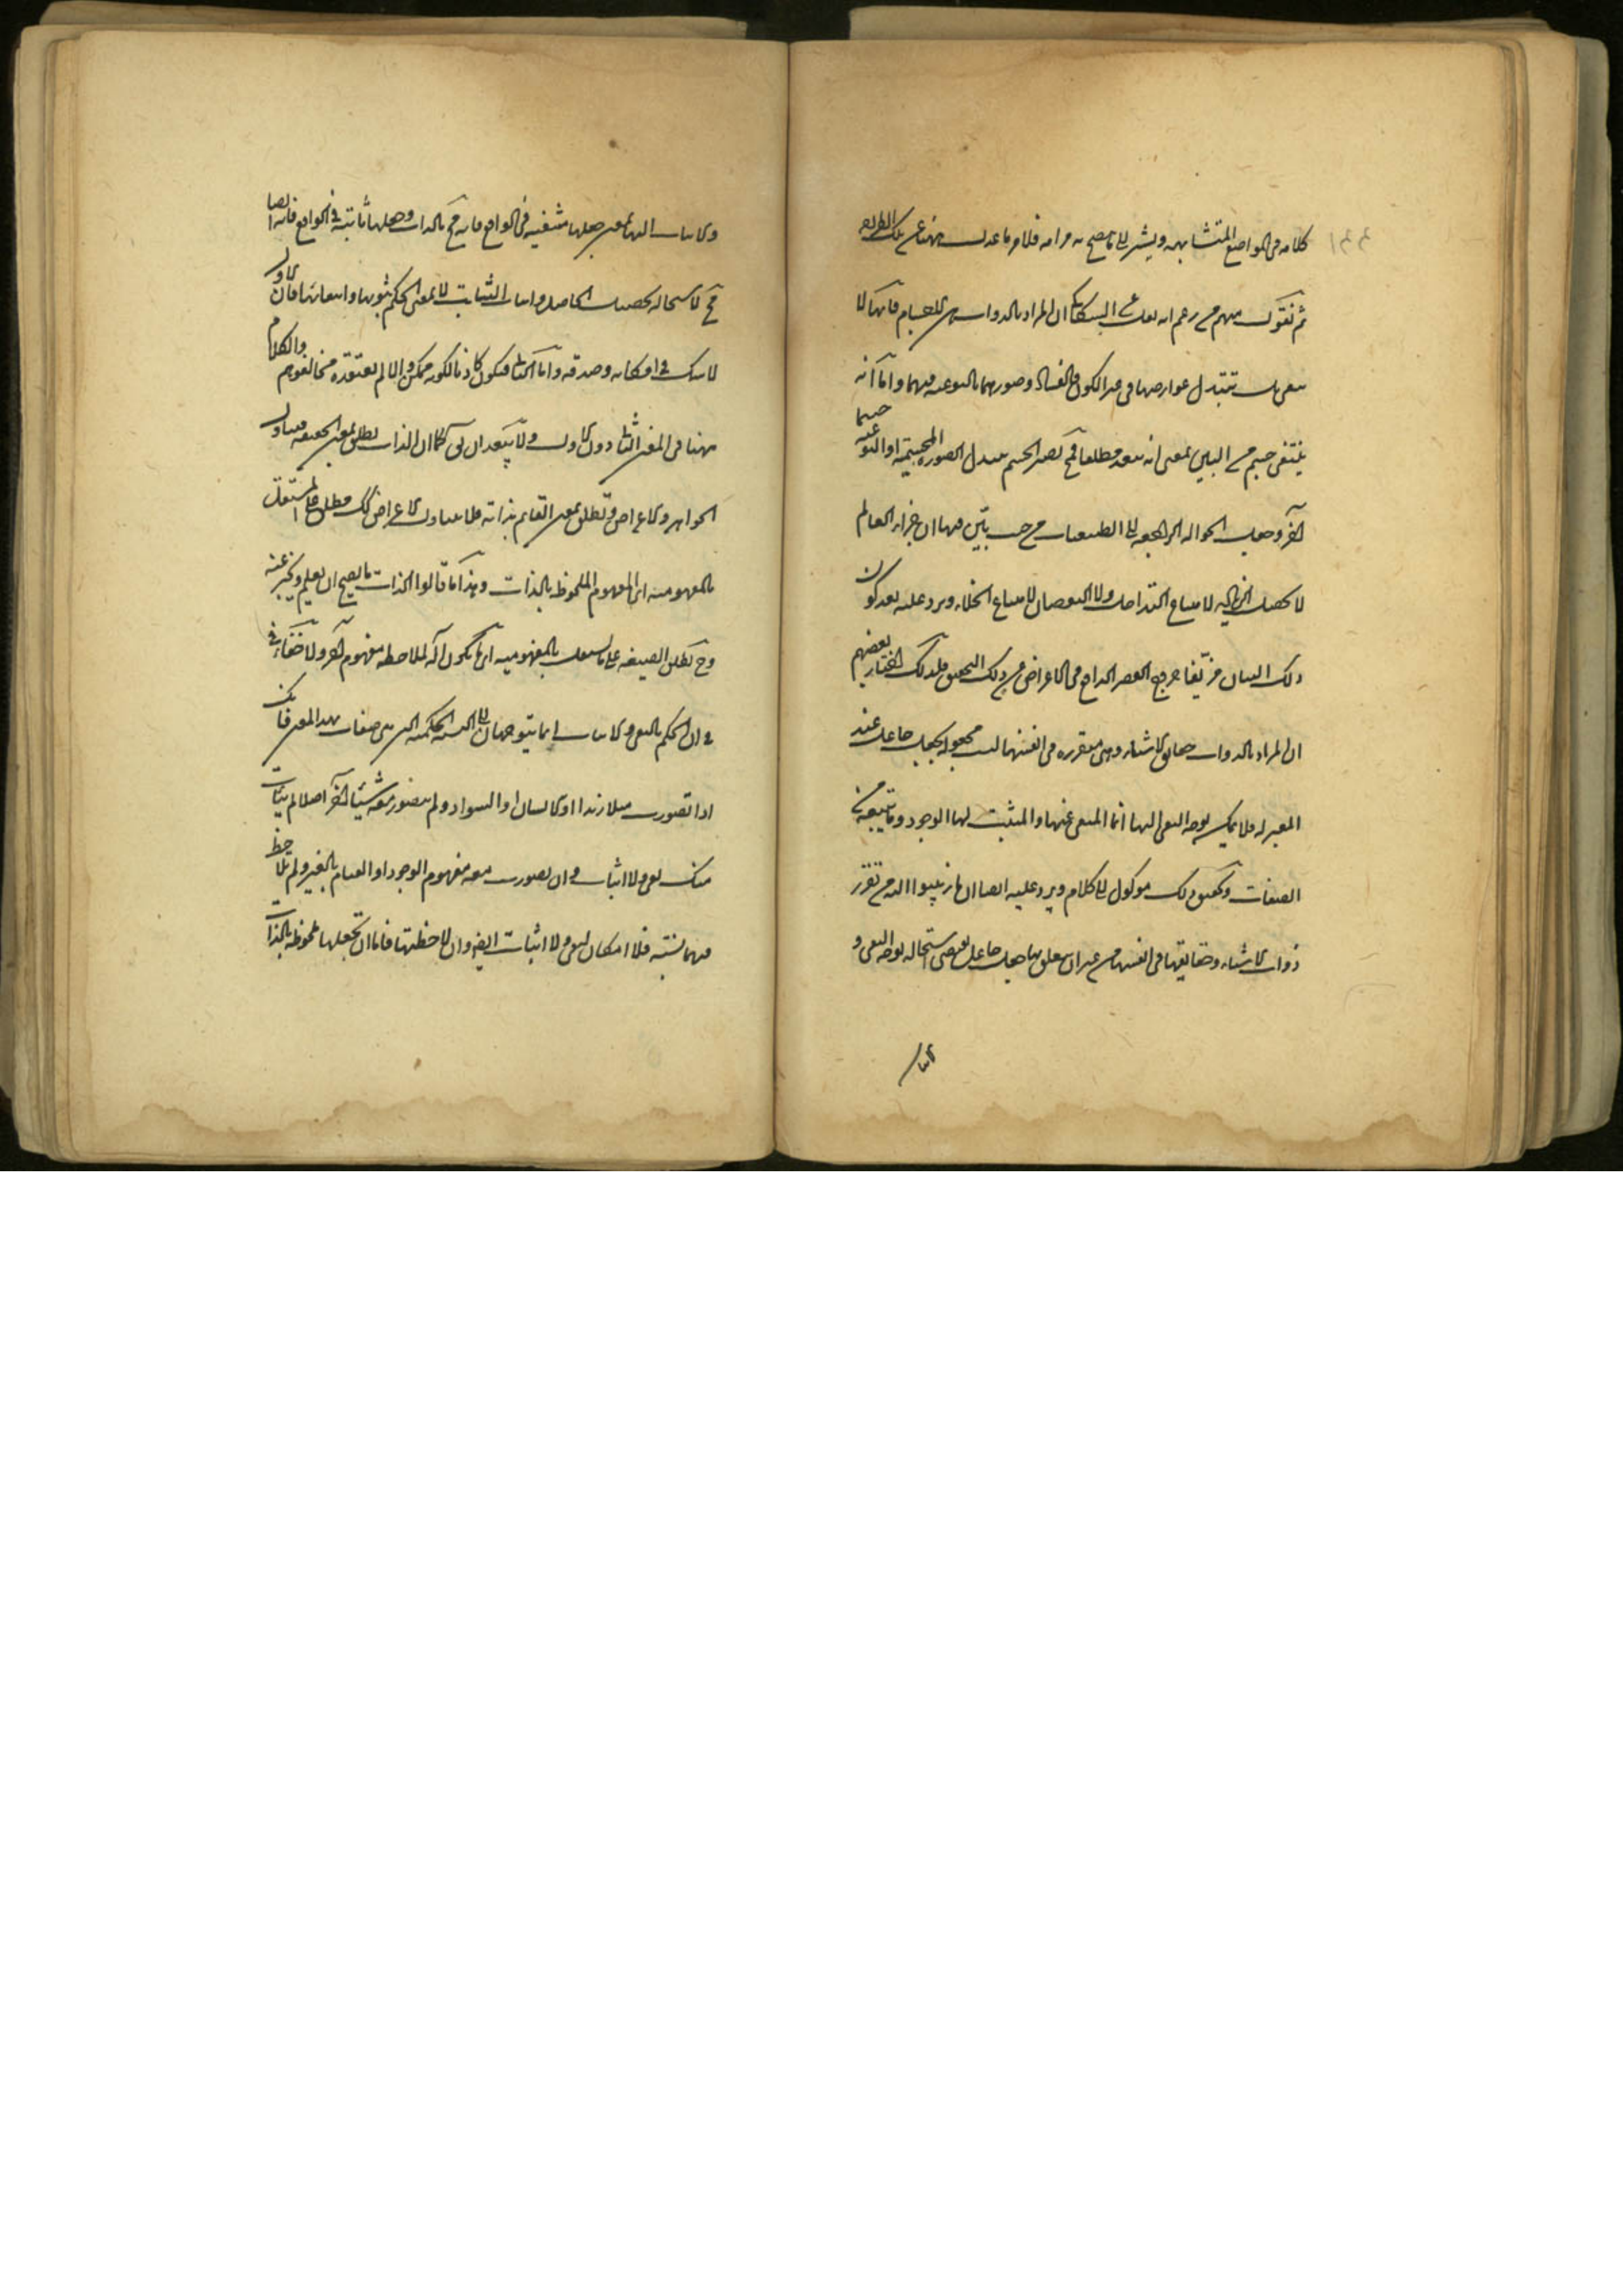 كلامه فى المواضع المتشابهه ويشير الى ما يصح به مرامه فلامر ما عدل ههنا عن تلك الطريقه
ثم نقول منهم من زعم انه نقل عن السكاكى ان المراد بالذوات هى الاجسام فانها لا
تنفى بل تتبدل عوارضها فى غير الكون والفساد وصورهما النوعيه فيهما واما انه
ينتفى جسم من البين بمعنى انه ينعدم مطلقا فمح لصير الجسم بتبدل الصوره الجسميه او النوعيه جسما
آخر وجعل الحواله الراجعه الى الطبيعيات من حيث بيّن فيها ان اجزاء العالم
لا يحصل لامتناع التداخل ولا النقصان لامتناع الخلاء ويرد عليه بعد كون
ذلك البيان مزيّفا خروج القصر الواقع فى الاعراض عن ذلك التحقيق فلذلك اختار بعضهم
ان المراد بالذوات حقايق الاشياء وهى متقرره فى انفسها ليست مجعوله بجعل جاعل عند
المعتزله فلا يمكن توجه النفى اليها انما المنفى عنها والمثبت لها الوجود وما يتبعه من
الصفات وتحقيق ذلك موكول الى الكلام ويرد عليه ايضا ان ما ذهبوا اليه من تقرر
ذوات الاشياء وحقايقها فى انفسها من غير ان يتعلق بها جعل جاعل يقتضى استحاله توجه النفى و
والاثبات اليها بمعنى جعلها منتفيه فى الواقع فانه مح بالذات وجعلها ثابته فى الواقع فانه ايضا
مح لاستحاله تحصيل الحاصل واثبات الثابت لا بمعنى الحكم بثبوتها وانتفائها فان الاول
لا شك فى امكانه وصدقه واما الثانى فيكون كاذبا لكونه ممكن وان لم يعتقده مخالفوهم والكلام
ههنا فى المعنى الثانى دون الاول ولا يبعد ان يق كما ان الذات يطلق بمعنى الحقيقه فيتناول
الجواهر والاعراض وتطلق بمعنى القايم بذاته فلا يتناول الاعراض كك مطلق على المستقل
بالمفهوميه اى المفهوم الملحوظ بالذات وهذا ما قالوا الذات ما يصح ان يعلم ويخبر عنه
وح تطلق الصفه على ما لا يستقل بالمفهوميه اى ما يكون آله لملاحظه مفهوم آخر ولا خفاء فى
فى ان الحكم بالنفى والاثبات انما يتوجهان الى النسب الحكميه التى هى صفات بهذا المعنى فانك
اذا تصورت مثلا زيدا او الانسان او السواد ولم تتصور معه شيئا آخر اصلا لم يتأت
منك نفى ولا اثبات وان تصورت معه مفهوم الوجود او القيام بالغير ولم تلاحظ
فيهما نسبته فلا امكان لنفى ولا اثبات ايضا وان لاحظتها فاما ان تجعلها ملحوظه بالذات